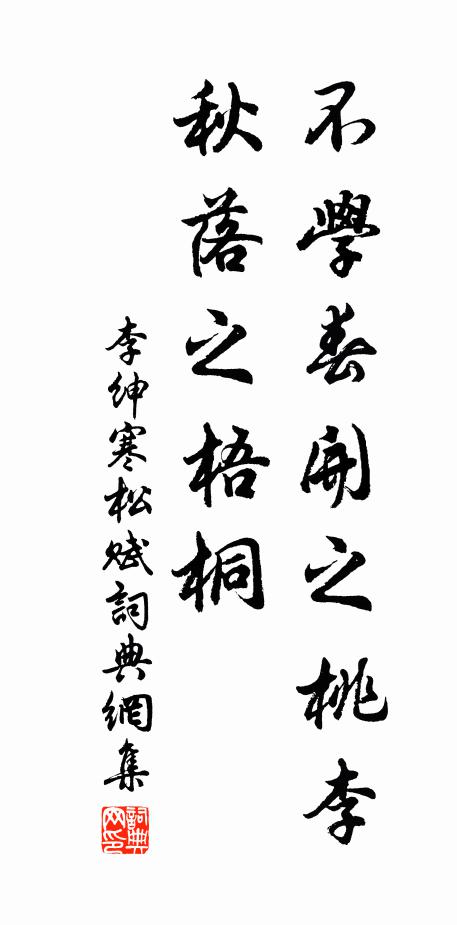 不學春開之桃李
秋落之梧桐
李紳寒松賦詞典網集
詞典网印